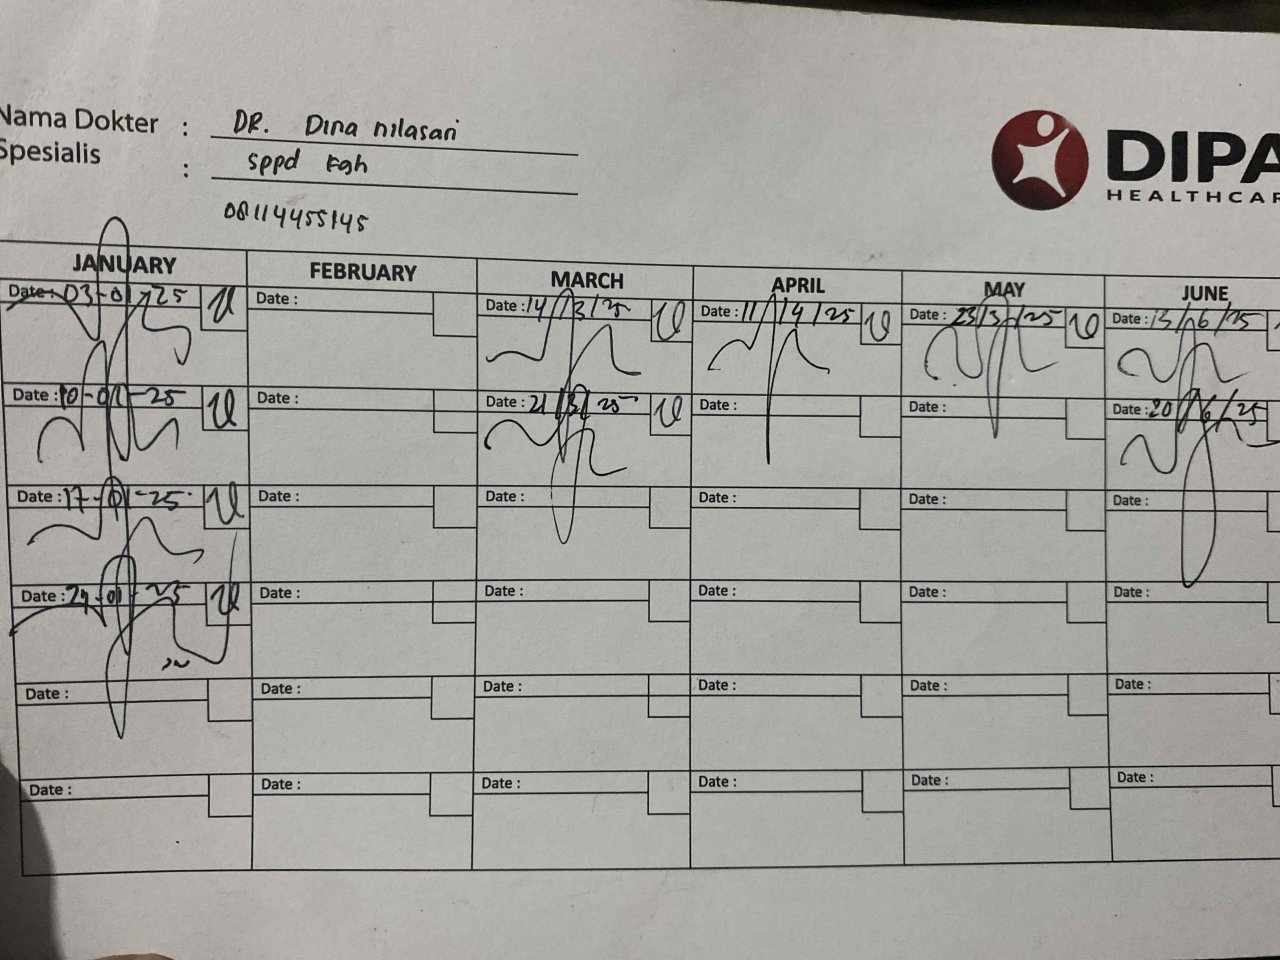 Nama Dokter : DR. Dina nilasari
Spesialis : sppd kgh
08114455145
DIPA
HEALTHCAR
JANUARY FEBRUARY MARCH APRIL MAY JUNE
Date : 03-01-25 Date : Date : 14/3/25 Date : 11/4/25 Date : 23/5/25 Date : 13/6/25
Date : 10-01-25 Date : Date : 21/3/25 Date : Date : Date : 20/6/25
Date : 17-01-25 Date : Date : Date : Date : Date :
Date : 24-01-25 Date : Date : Date : Date : Date :
Date : Date : Date : Date : Date : Date :
Date : Date : Date : Date : Date : Date :